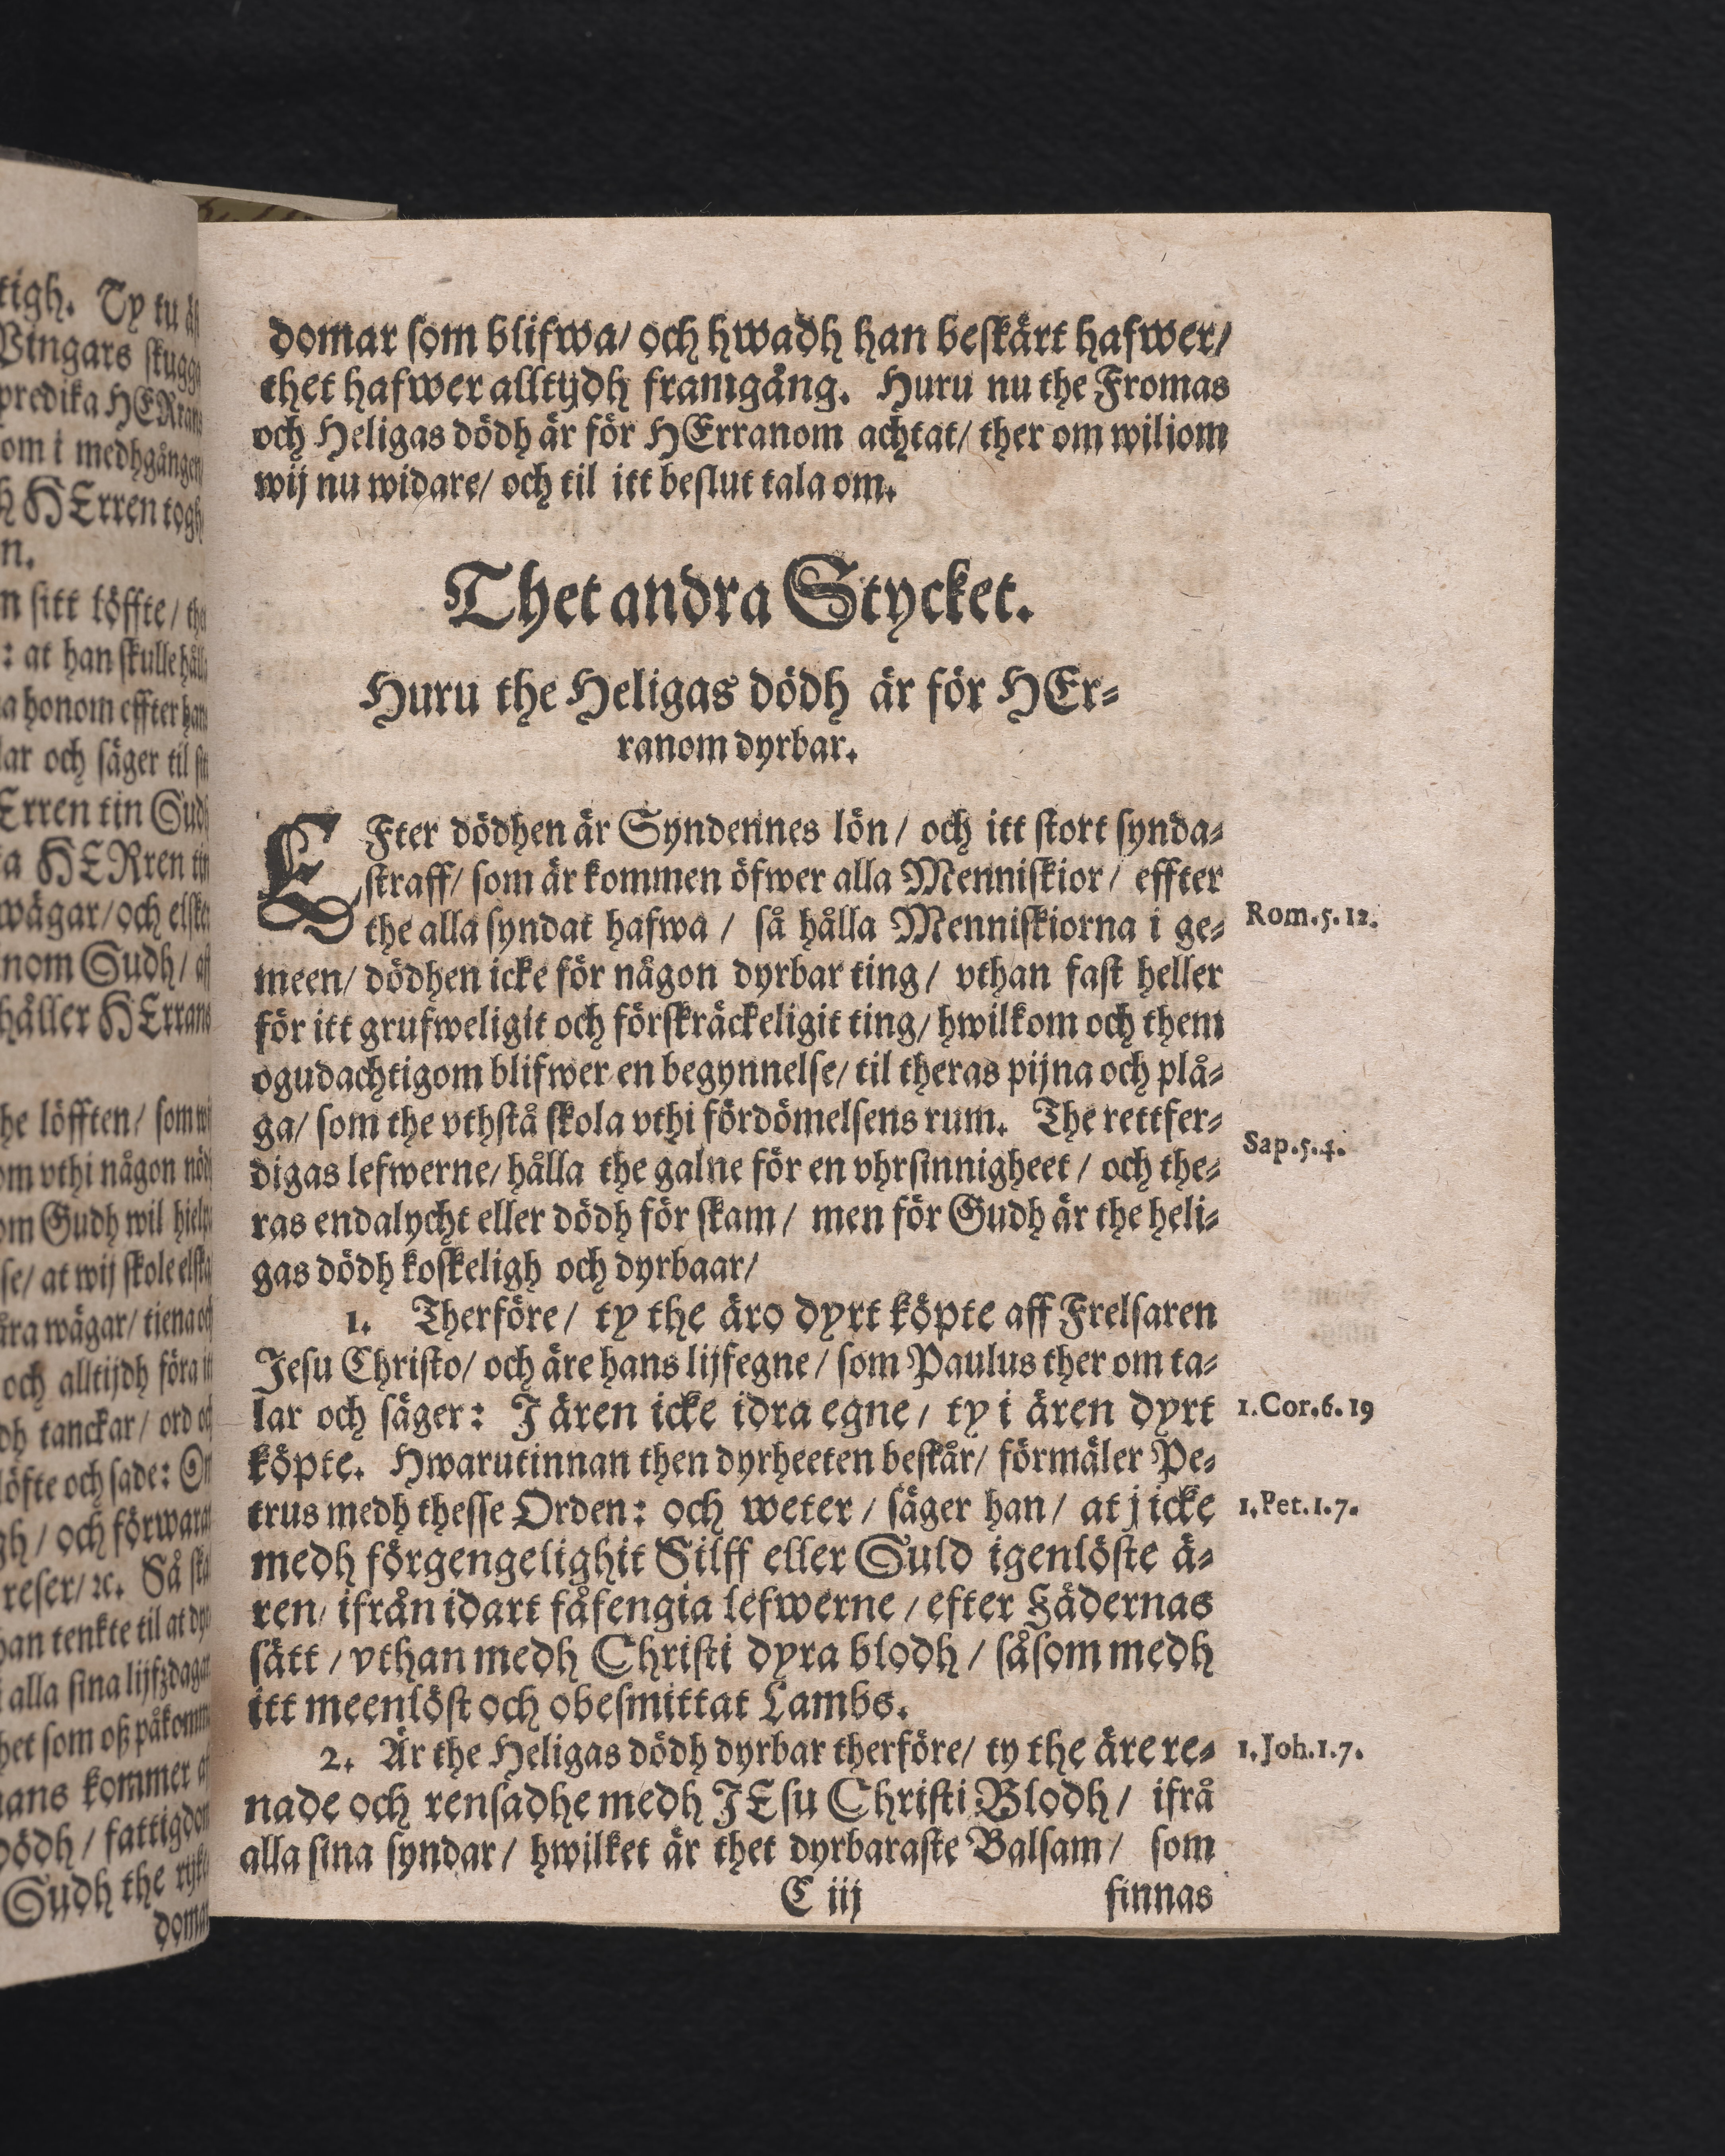 domar som blifwa/ och hwadh han beskärt hafwer/
thet hafwer alltijdh framgång. Huru nu the Fromas
och Heligas dödh är för HErranom achtat/ ther om wiliom
wij nu widare/ och til itt beslut tala om.
Thet andra Stycket.
Huru the Heligas dödh är för HEr-
ranom dyrbar.
EFter dödhen är Syndennes lön/ och itt stort synda-
straff/ som är kommen öfwer alla Menniskior/ effter
the alla syndat hafwa/ så hålla Menniskiorna i ge-
Rom.5.12.
meen/ dödhen icke för någon dyrbar ting/ vthan fast heller
för itt grufweligit och förskräckeligit ting/ hwilkom och them
ogudachtigom blifwer en begynnelse/ til theras pijna och plå-
ga/ som the vthstå skola vthi fördömelsens rum. The rettfer-
Sap.5.4.
digas lefwerne/ hålla the galne för en vhrsinnigheet/ och the-
ras endalycht eller dödh för skam/ men för Gudh är the heli-
gas dödh koskeligh och dyrbaar/
1. Therföre/ ty the äro dyrt köpte aff Frelsaren
Jesu Christo/ och äre hans lijfegne/ som Paulus ther om ta-
lar och säger: J ären icke idra egne/ ty i ären dyrt
1.Cor.6.19
köpte. Hwarutinnan then dyrheeten beskår/ förmäler Pe-
trus medh thesse Orden: och weter/ säger han/ at j icke
1.Pet.1.7.
medh förgengelighit Silff eller Guld igenlöste ä-
ren/ ifrån idart fåfengia lefwerne/ efter Fädernas
sätt/ vthan medh Christi dyra blodh/ såsom medh
itt meenlöst och obesmittat Lambs.
2. Är the Heligas dödh dyrbar therföre/ ty the äre re-
1.Joh.1.7.
nade och rensadhe medh JEsu Christi Blodh/ ifrå
alla sina syndar/ hwilket är thet dyrbaraste Balsam/ som
C iij finnas